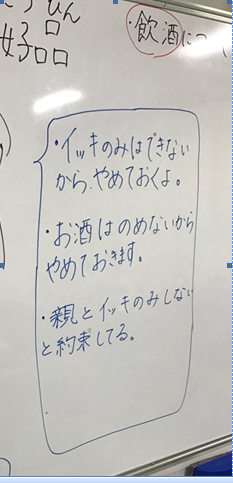 ひん
口
好品口口
・飲酒につ
・イッキのみはできない
から、やめておくよ。
・お酒はのめないから
やめておきます。
・親とイッキのみしない
と約束してる。